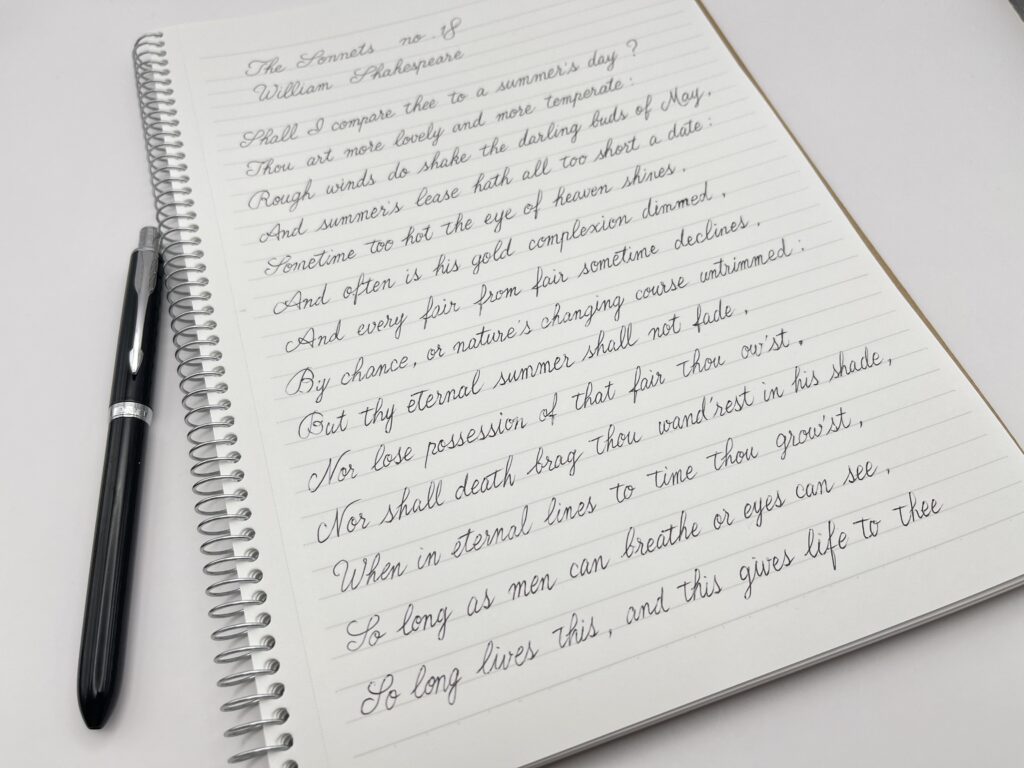 The Sonnets no.18
William Shakespeare
Shall I compare thee to a summer's day?
Thou art more lovely and more temperate:
Rough winds do shake the darling buds of May,
And summer's lease hath all too short a date:
Sometime too hot the eye of heaven shines,
And often is his gold complexion dimmed,
And every fair from fair sometime declines,
By chance, or nature's changing course untrimmed:
But thy eternal summer shall not fade,
Nor lose possession of that fair thou ow'st,
Nor shall death brag thou wand'rest in his shade,
When in eternal lines to time thou grow'st,
So long as men can breathe or eyes can see,
So long lives this, and this gives life to thee